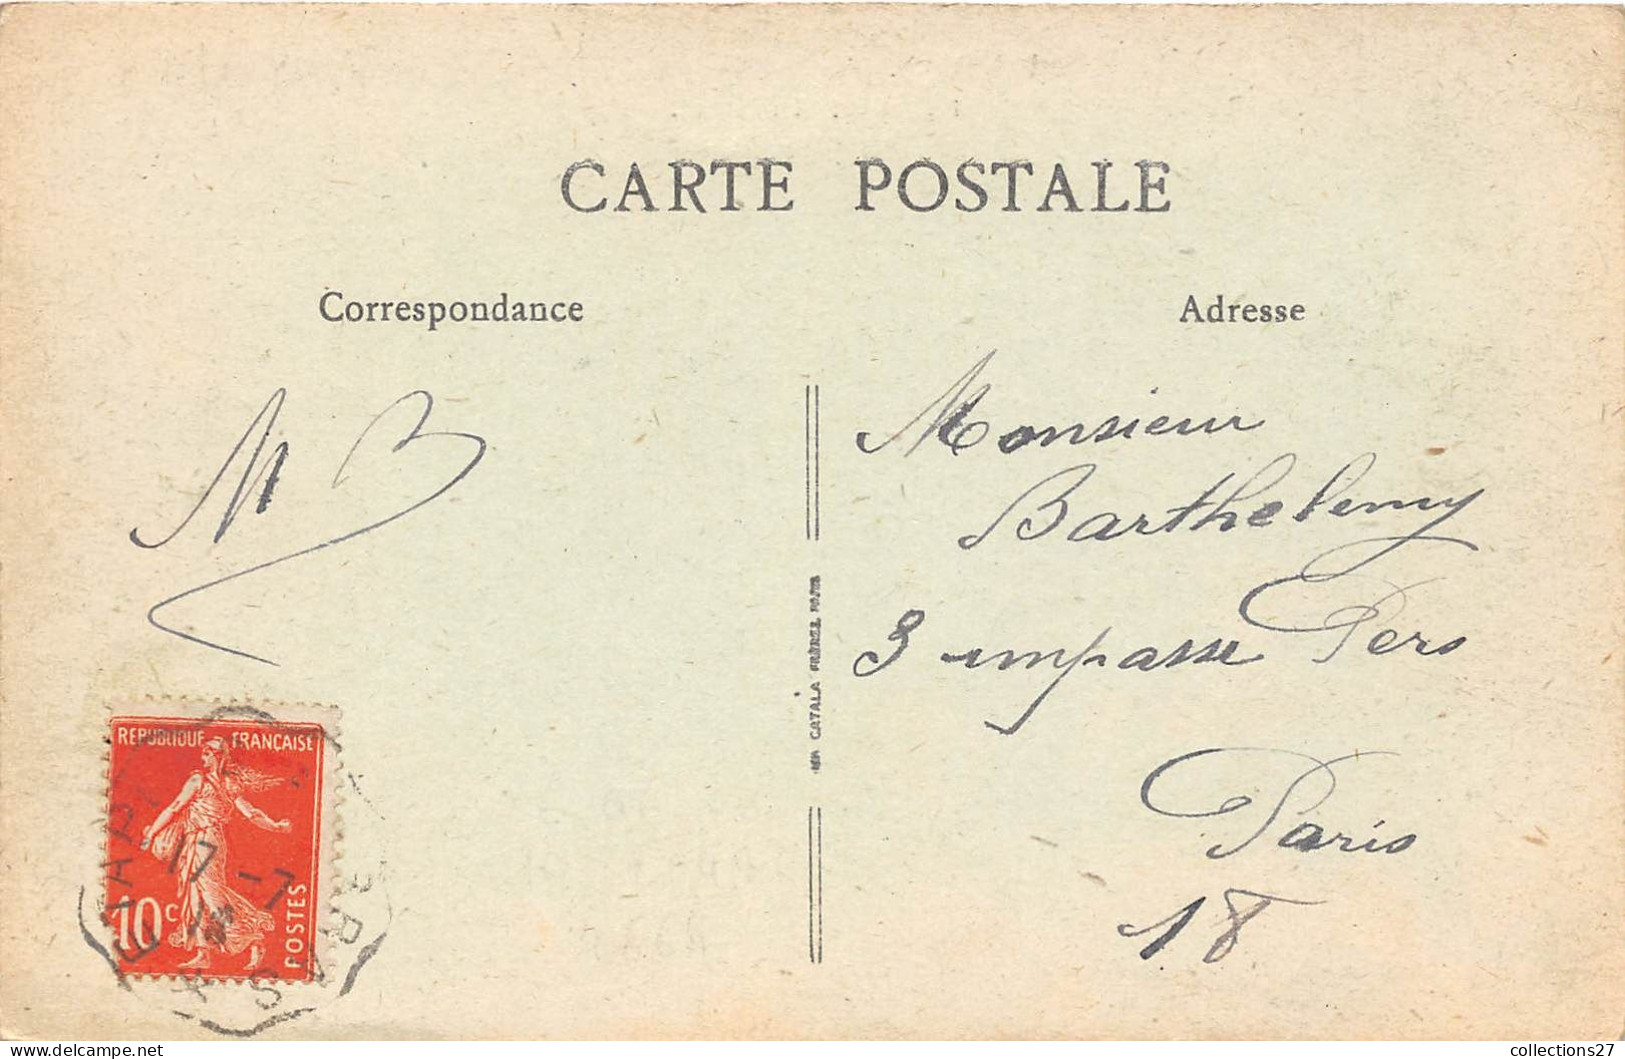 CARTE POSTALE
Correspondance
Adresse
M B
Monsieur
Barthelemy
3 impasse Pers
Paris
18
CATALA FRÈRES, PARIS
REPUBLIQUE FRANÇAISE
10c
POSTES
17 -7
collections27